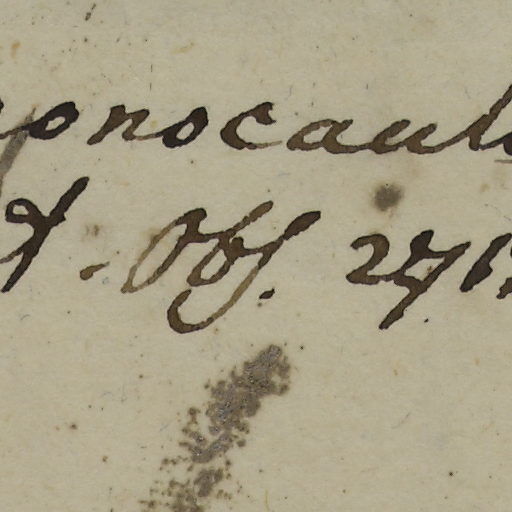 onocaul
. Obs. 271